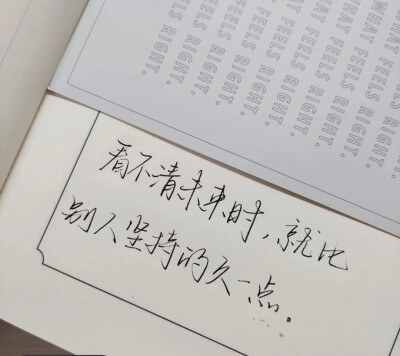 WHAT FEELS RIGHT.
WHAT FEELS RIGHT.
WHAT FEELS RIGHT.
WHAT FEELS RIGHT.
WHAT FEELS RIGHT.
WHAT FEELS RIGHT.
看不清未来时，就比
别人坚持的久一点.